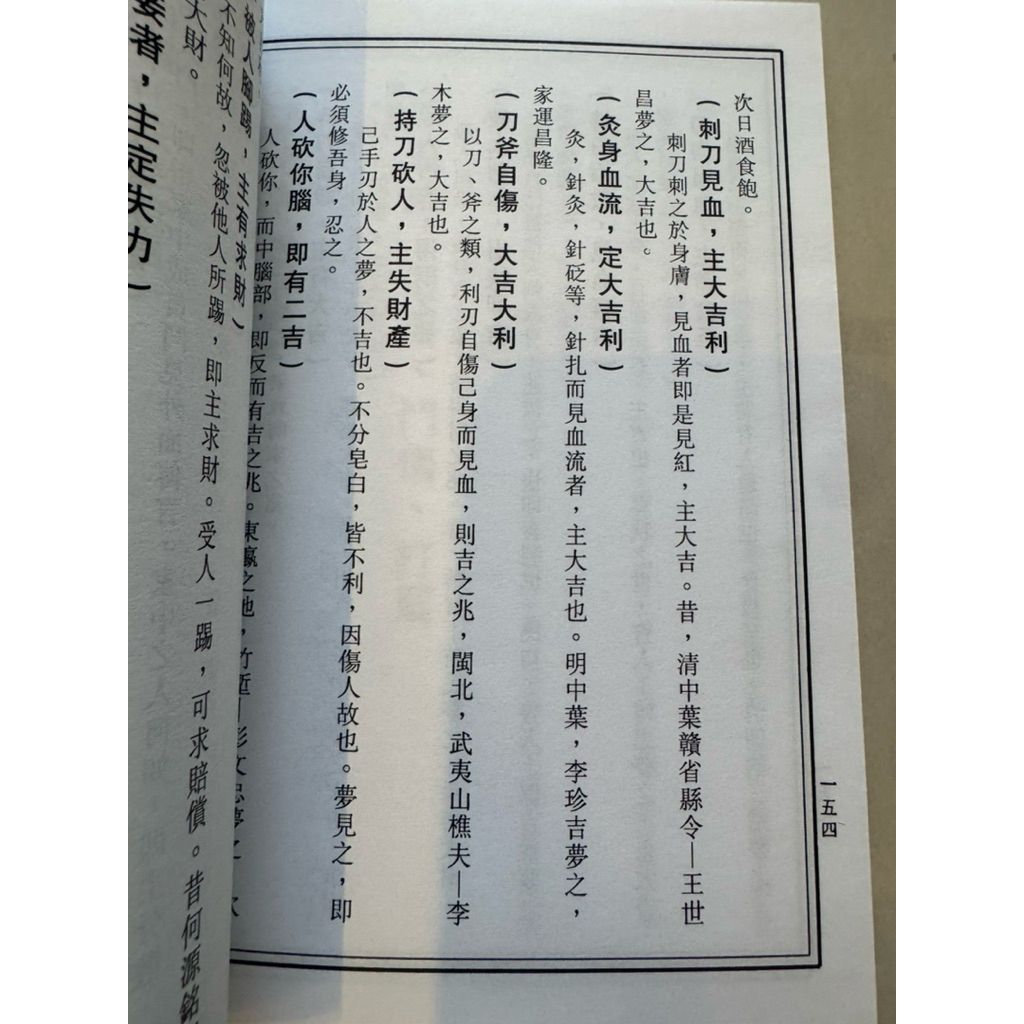 次日酒食飽。
(刺刀見血，主大吉利)
刺刀刺之於身膚，見血者即是見紅，主大吉。昔，清中葉贛省縣令—王世
昌夢之，大吉也。
(灸身血流，定大吉利)
灸，針灸，針砭等，針扎而見血流者，主大吉也。明中葉，李珍吉夢之，
家運昌隆。
(刀斧自傷，大吉大利)
以刀、斧之類，利刃自傷己身而見血，則吉之兆，閩北，武夷山樵夫—李
木夢之，大吉也。
(持刀砍人，主失財產)
己手刃於人之夢，不吉也。不分皂白，皆不利，因傷人故也。夢見之，即
必須修吾身，忍之。
(人砍你腦，即有二吉)
人砍你，而中腦部，即反而有吉之兆。東瀛之地，竹塹—彭文忠夢之
一五四
被人腳踢，主有求財)
不知何故，忽被他人所踢，即主求財。受人一踢，可求賠償。昔何源銘
大財。
者，主定失力)